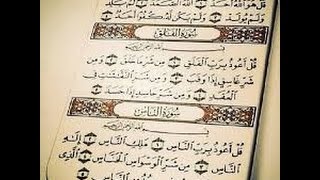 قُلْ هُوَ اللَّهُ أَحَدٌ اللَّهُ الصَّمَدُ لَمْ يَلِدْ
وَلَمْ يُولَدْ وَلَمْ يَكُن لَّهُ كُفُوًا أَحَدٌ
سُورَةُ الْفَلَقِ
قُلْ أَعُوذُ بِرَبِّ الْفَلَقِ مِن شَرِّ مَا خَلَقَ وَمِن
شَرِّ غَاسِقٍ إِذَا وَقَبَ وَمِن شَرِّ النَّفَّاثَاتِ فِي
الْعُقَدِ وَمِن شَرِّ حَاسِدٍ إِذَا حَسَدَ
سُورَةُ النَّاسِ
قُلْ أَعُوذُ بِرَبِّ النَّاسِ مَلِكِ النَّاسِ إِلَٰهِ
النَّاسِ مِن شَرِّ الْوَسْوَاسِ الْخَنَّاسِ الَّذِي